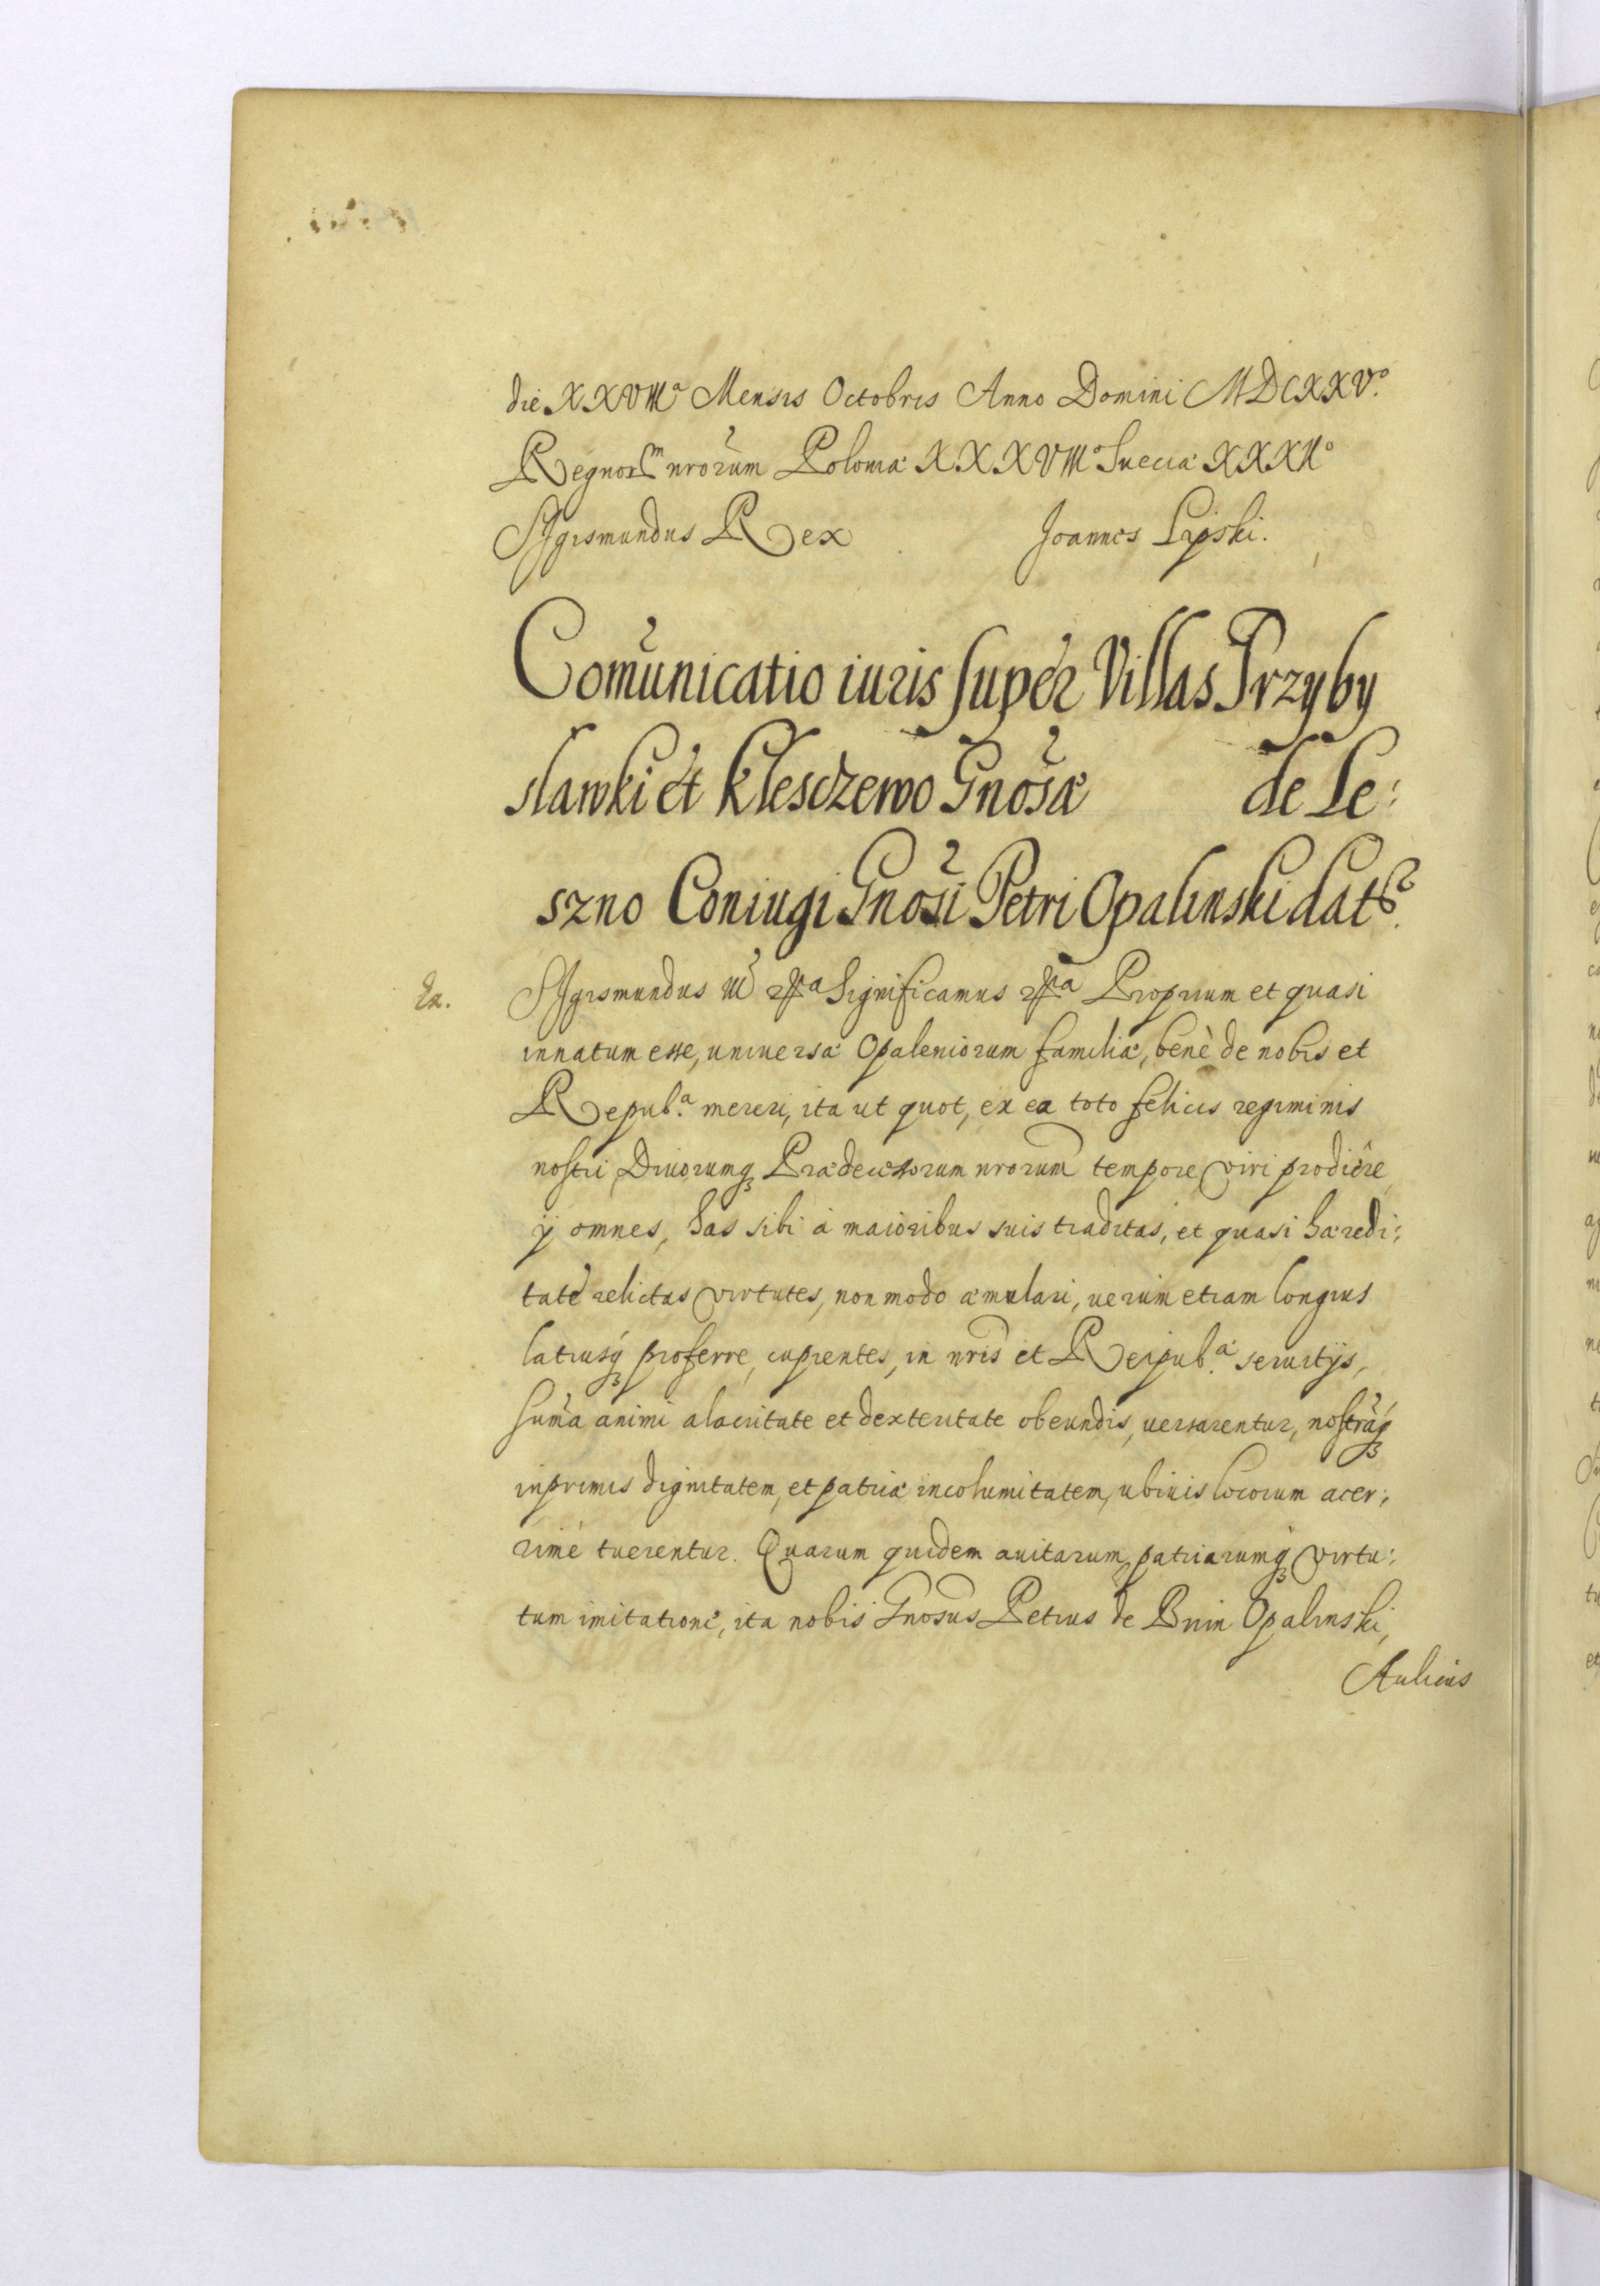 die XXVIIIª Mensis Octobris Anno Domini MDCXXVº
Regnorum nrorum Poloniæ XXXVIIIº Sueciæ XXXIIº
Sigismundus Rex Joannes Lipski.
Comunicatio iuris super Villas Przyby
slawki et Klesczewo Gnosæ de Le:
szno Coniugi Gnosi Petri Opalinski datr.
Ex. Sigismundus III etca Significamus etca Proprium et quasi
innatum esse, uniuersæ Opaleniorum familiæ, benè de nobis et
Repub.ª mereri, ita ut quot, ex ea toto felicis regiminis
nostri Diuorumq Prædecessorum nrorum tempore viri prodiêre
ij omnes, has sibi à maioribus suis traditas, et quasi hæredi:
tate relictas virtutes, non modo æmulari, uerùm etiam longius
latiusq proferre, cupientes, in nris et Reipub.æ seruitijs,
suma animi alacritate et dexteritate obeundis, uersarentur, nostraq
inprimis dignitatem, et patriæ incolumitatem, ubiuis locorum acer:
rimè tuerentur. Quarum quidem auitarum patriarumq virtu:
tum imitatione, ita nobis Gnosus Petrus de Bnin Opalinski,
Aulicus